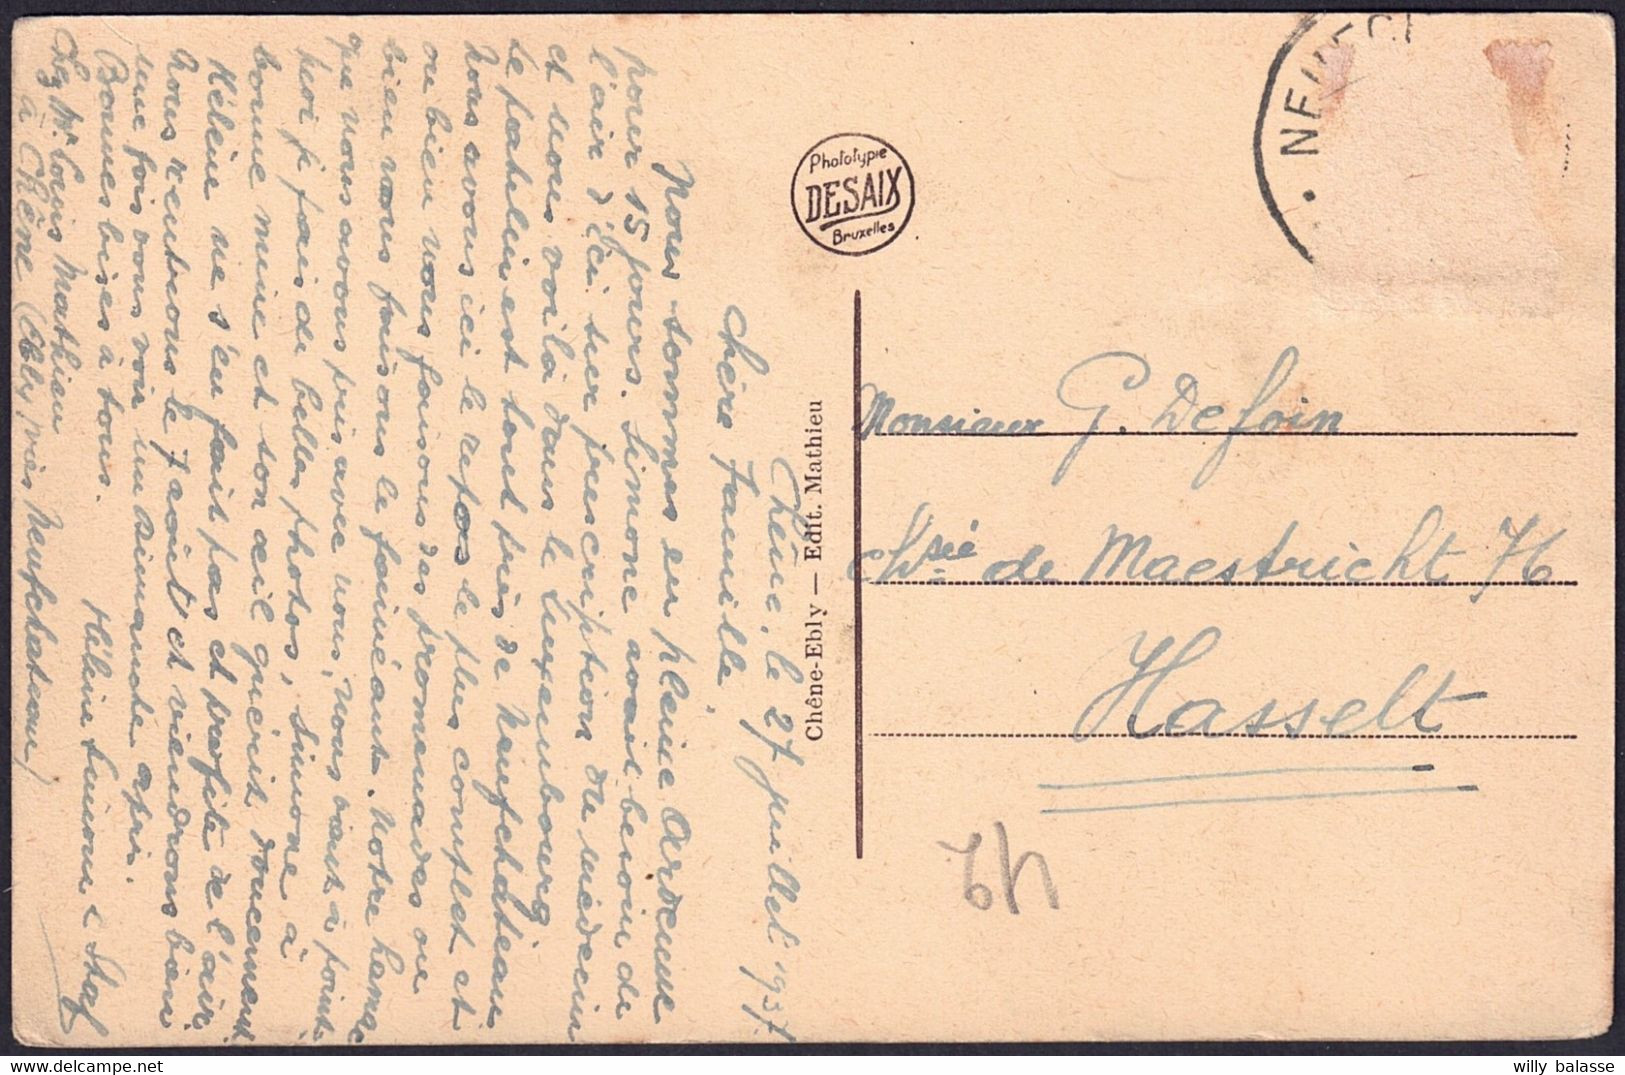 Chêne, le 27 juillet 1937.
Chère famille,
Nous sommes en pleine Ardenne
pour 15 jours. Simone avait besoin de
l'air d'ici sur prescription du médecin
et nous voilà dans le Luxembourg
le patelin est tout près de Neufchâteau
nous avons ici le repos le plus complet et
ou bien nous faisons des promenades ou
bien nous faisons le fainéant. Notre hamac
que nous avons pris avec nous, nous vaut à point
moi je fais de belles photos, Simone a
bonne mine et son œil guérit doucement
Hélène ne s'en fait pas et profite de l'air
nous rentrons le 7 août et viendrons bien
une fois vous voir un dimanche apri.
Bonnes bises à tous.
Hélène Simone & Staf
Chez Mr Louis Mathieu
à Chêne (Ebly près Neufchateau)
Phototypie
DESAIX
Bruxelles
Chêne-Ebly — Edit. Mathieu
NEUFCH
Monsieur G. Defoin
Chsée de Maestricht 76
Hasselt
willy balasse